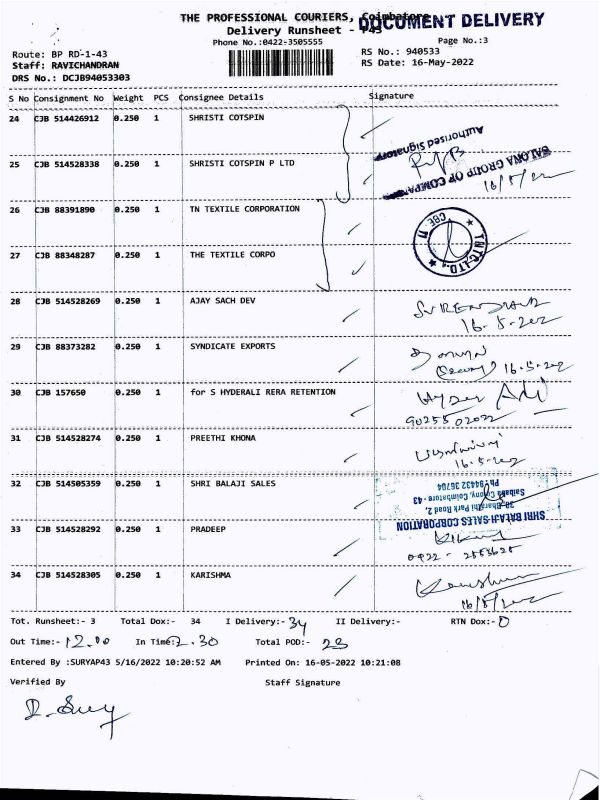 THE PROFESSIONAL COURIERS, Coimbatore
DOCUMENT DELIVERY
Delivery Runsheet - P43
Phone No.:0422-3505555
Page No.:3
Route: BP RD-1-43
RS No.: 940533
Staff: RAVICHANDRAN
RS Date: 16-May-2022
DRS No.: DCJB94053303
S No Consignment No Weight PCS Consignee Details Signature
24 CJB 514426912 0.250 1 SHRISTI COTSPIN
Authorised Signatory
25 CJB 514528338 0.250 1 SHRISTI COTSPIN P LTD
SALONA GROUP OF COMPA
16/5/2022
26 CJB 88391890 0.250 1 TN TEXTILE CORPORATION
CBE. 11
TNTC.LTD.
27 CJB 88348287 0.250 1 THE TEXTILE CORPO
28 CJB 514528269 0.250 1 AJAY SACH DEV
16-5-202
29 CJB 88373282 0.250 1 SYNDICATE EXPORTS
16-5-202
30 CJB 157650 0.250 1 for S HYDERALI RERA RETENTION
Hyder Ali
9025502022
31 CJB 514528274 0.250 1 PREETHI KHONA
16-5-202
32 CJB 514505359 0.250 1 SHRI BALAJI SALES
SHRI BALAJI SALES CORPORATION
30-Bharathi Park Road 2,
Saibaba Colony, Coimbatore-43
Ph: 94432 36704
33 CJB 514528292 0.250 1 PRADEEP
34 CJB 514528305 0.250 1 KARISHMA
16/5/202
Tot. Runsheet:- 3 Total Dox:- 34 I Delivery:- 34 II Delivery:- RTN Dox:- 0
Out Time:- 12.00 In Time:- 2.30 Total POD:- 23
Entered By :SURYAP43 5/16/2022 10:20:52 AM Printed On: 16-05-2022 10:21:08
Verified By Staff Signature